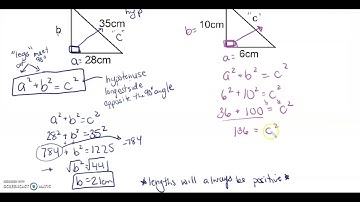 hyp
b
35cm
"c"
"legs" meet
90°
a= 28cm
a² + b² = c²
hypotenuse
longest side
opposite the 90° angle
a² + b² = c²
28² + b² = 35²
784 + b² = 1225
-784
√b² = √441
b = 21cm
b= 10cm
"c"
a = 6cm
a² + b² = c²
6² + 10² = c²
36 + 100 = c²
136 = c²
*lengths will always be positive*